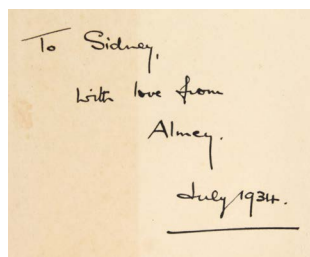 To Sidney,
with love from
Almey.
July 1934.